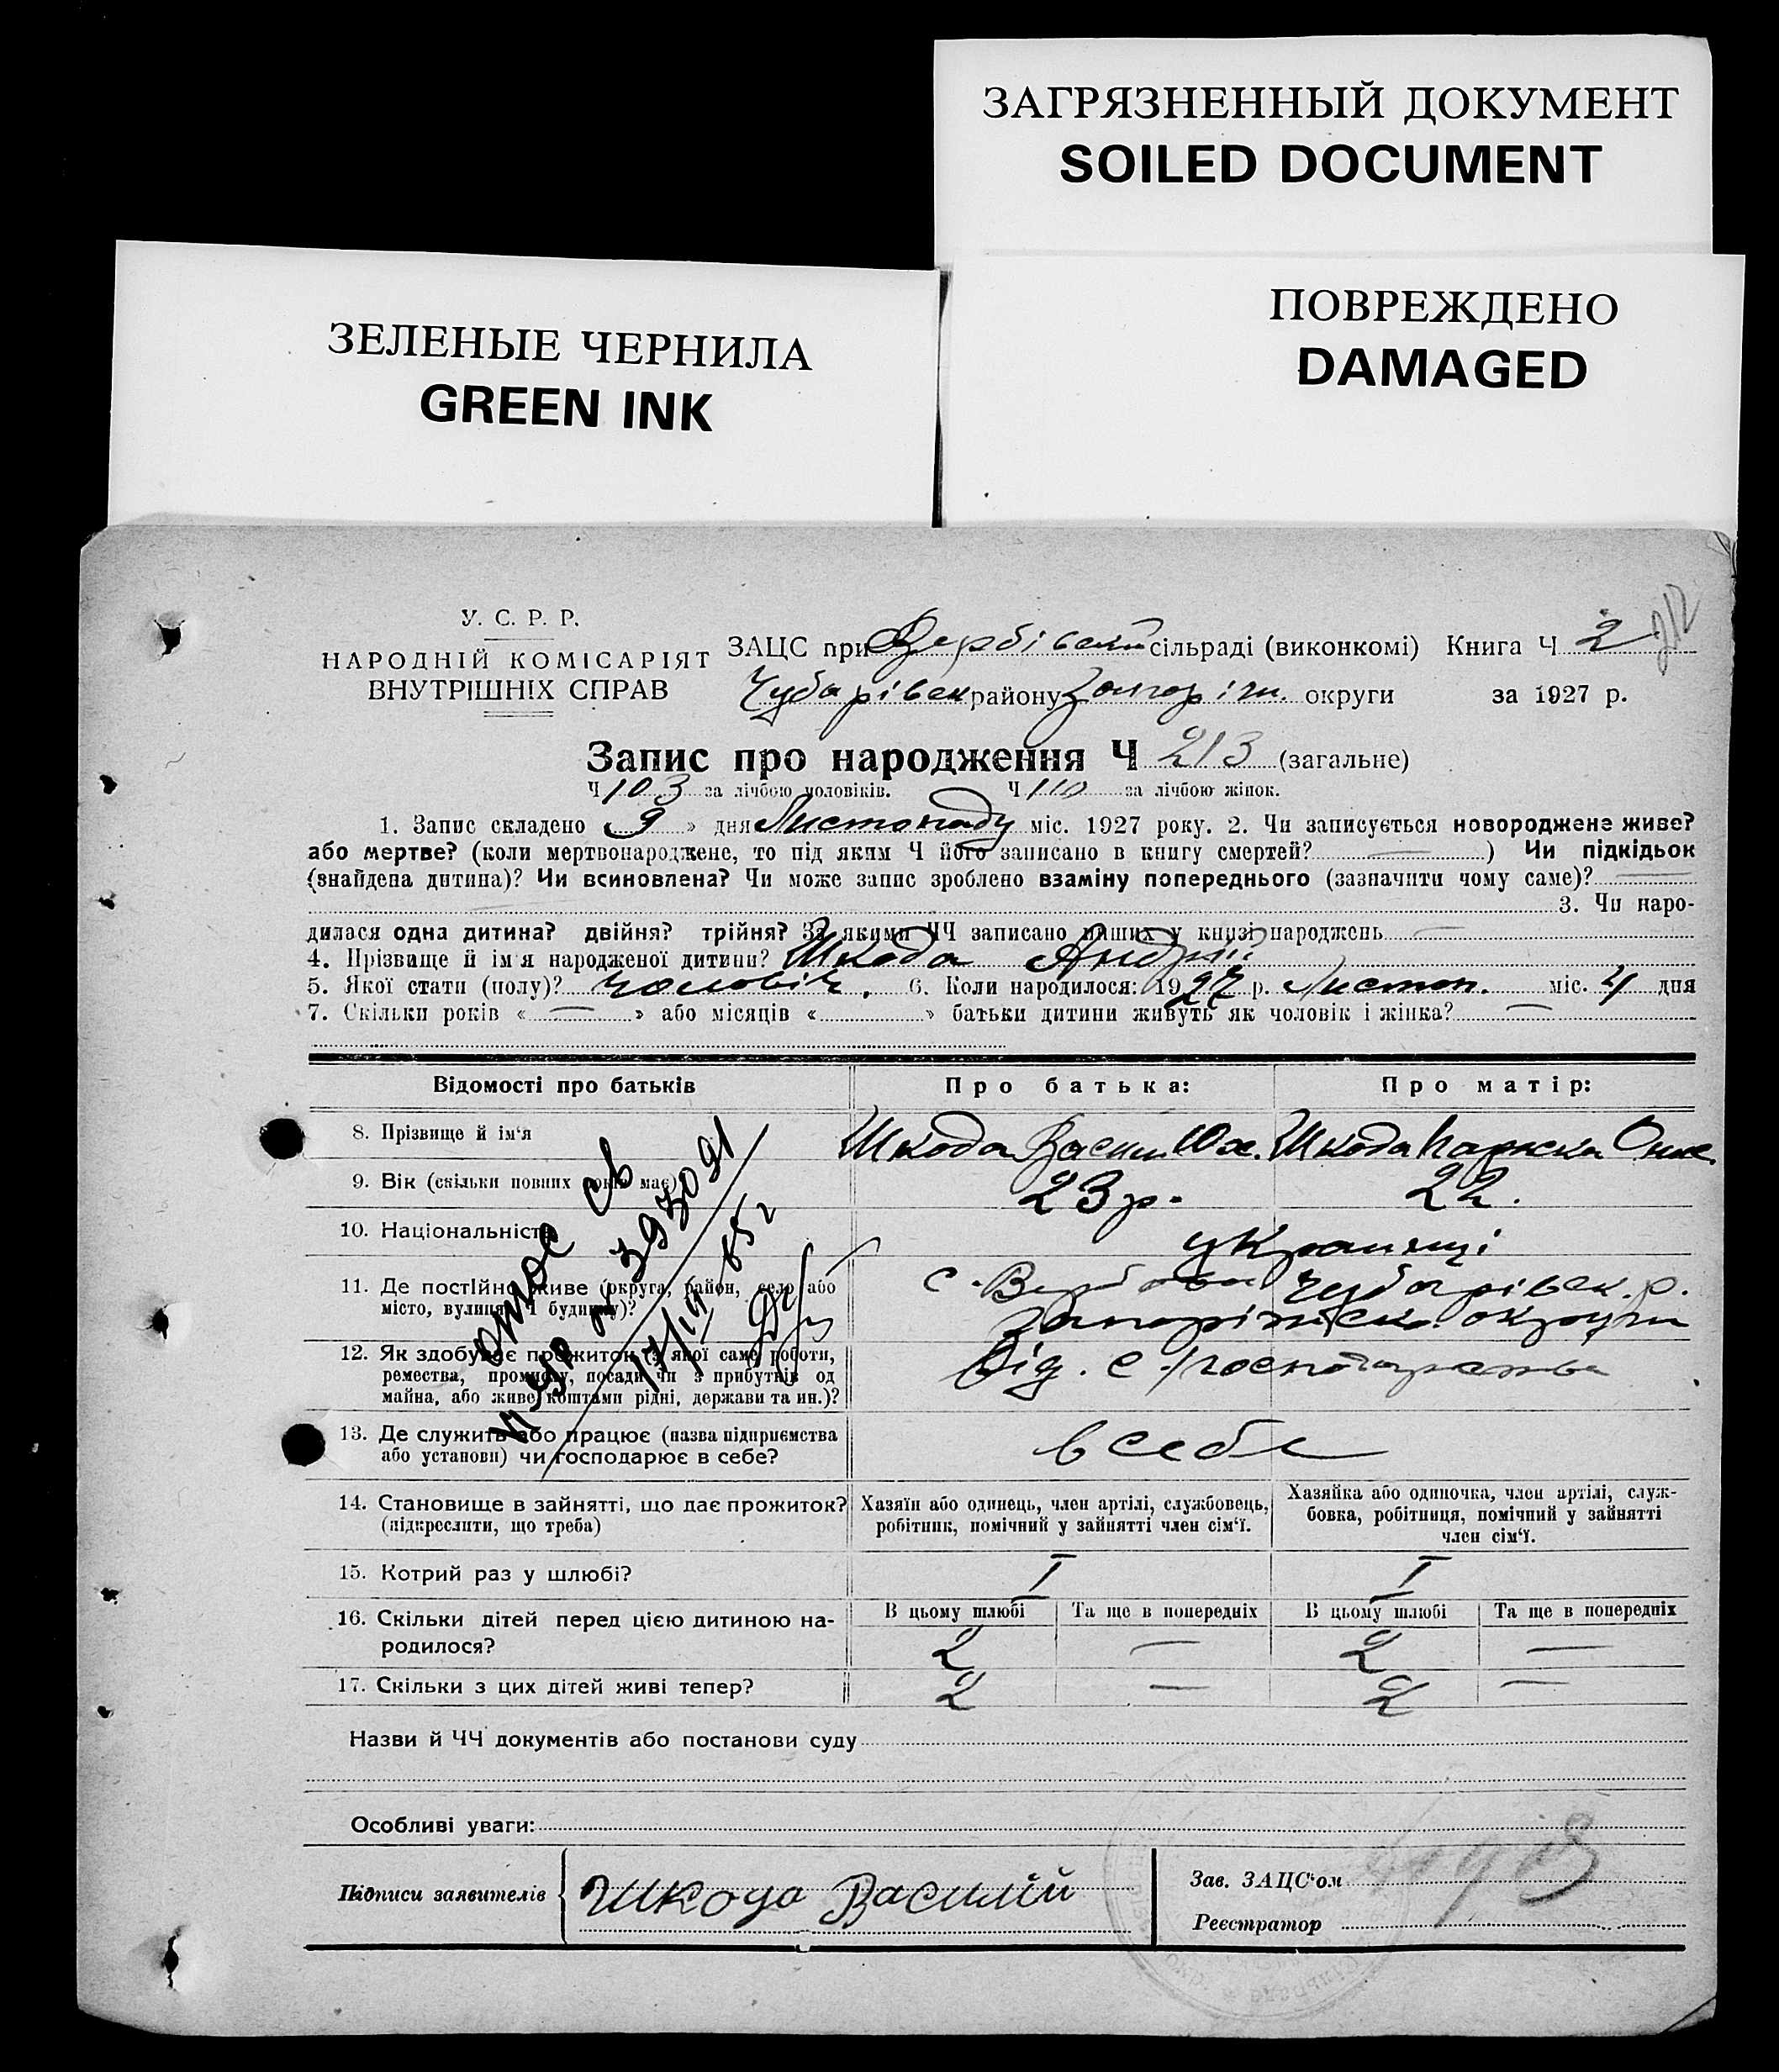 ЗАГРЯЗНЕННЫЙ ДОКУМЕНТ
SOILED DOCUMENT
ЗЕЛЕНЫЕ ЧЕРНИЛА
GREEN INK
ПОВРЕЖДЕНО
DAMAGED
212
У. С. Р. Р.
НАРОДНІЙ КОМІСАРІЯТ
ВНУТРІШНІХ СПРАВ
ЗАЦС при Вербівській сільраді (виконкомі) Книга Ч 2
Чубарівськ району Запоріж. округи за 1927 р.
Запис про народження Ч 213 (загальне)
Ч 103 за лічбою чоловіків. Ч 110 за лічбою жінок.
1. Запис складено « 9 » дня Листопаду міс. 1927 року. 2. Чи записується новороджене живе?
або мертве? (коли мертвонароджене, то під яким Ч його записано в книгу смертей? —) Чи підкідьок
(знайдена дитина)? Чи всиновлена? Чи може запис зроблено взаміну попереднього (зазначити чому саме)? —
— 3. Чи наро-
дилася одна дитина? двійня? трійня? За якими ЧЧ записано инших у книзі народжень —
4. Прізвище й ім'я народженої дитини? Шкода Андрій
5. Якої стати (полу)? чоловік. 6. Коли народилося: 1927 р. Листоп. міс. 4 дня
7. Скільки років « — » або місяців « » батьки дитини живуть як чоловік і жінка? —
Відомості про батьків Про батька: Про матір:
8. Прізвище й ім'я Шкода Васил Юх. Шкода
9. Вік (скільки повних років має) 23 р. 22.
10. Національність українці
11. Де постійно живе (округа, район, село або
місто, вулиця, Ч будинку)?
с. Вербова Чубарівськ. р.
Запоріжськ. округи
12. Як здобуває прожиток (з якої саме роботи,
ремества, промислу, посади чи з прибутків од
майна, або живе коштами рідні, держави та ин.)?
Від. с/господарства
13. Де служить або працює (назва підприємства
або установи) чи господарює в себе?
в себе
14. Становище в зайнятті, що дає прожиток?
(підкреслити, що треба)
Хазяїн або одинець, член артілі, службовець,
робітник, помічний у зайнятті член сім'ї.
Хазяйка або одиночка, член артілі, служ-
бовка, робітниця, помічний у зайнятті
член сім'ї.
15. Котрий раз у шлюбі? I I
16. Скільки дітей перед цією дитиною на-
родилося?
В цьому шлюбі Та ще в попередніх В цьому шлюбі Та ще в попередніх
2 — 2 —
17. Скільки з цих дітей живі тепер? 2 — 2 —
Назви й ЧЧ документів або постанови суду
Особливі уваги:
Підписи заявителів Шкода Василій
Зав. ЗАЦС'ом
Реєстратор